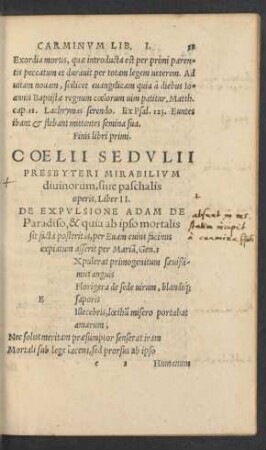 CARMINVM LIB. I. 58
Exordia mortis, quæ introducta est per primi paren-
tis peccatum et durauit per totam legem ueterem. Ad
uitam nouam, scilicet euangelicam quia à diebus Io-
annis Baptistæ regnum cœlorum uim patitur, Matth.
cap. 11. Lachrymas serendo. Ex Psal. 125. Euntes
ibant & flebant mittentes semina sua.
Finis libri primi.
COELII SEDVLII
PRESBYTERI MIRABILIVM
diuinorum, siue paschalis
operis, Liber II.
DE EXPVLSIONE ADAM DE
Paradiso, & quia ab ipso mortalis
sit facta posteritas, per Euam cuius facinus
expiatum asserit per Mariã, Gen. 3
EXpulerat primogenitum sæuissi-
mus anguis
Florigera de sede uirum, blandisq́;
saporis
Illecebris, lœthũ misero portabat
amarum,
Nec solus meritam præsumptor senserat iram
Mortali sub lege iacens, sed prorsus ab ipso
e 2 Humanum
absunt in ms.
statim incipit
à carmine